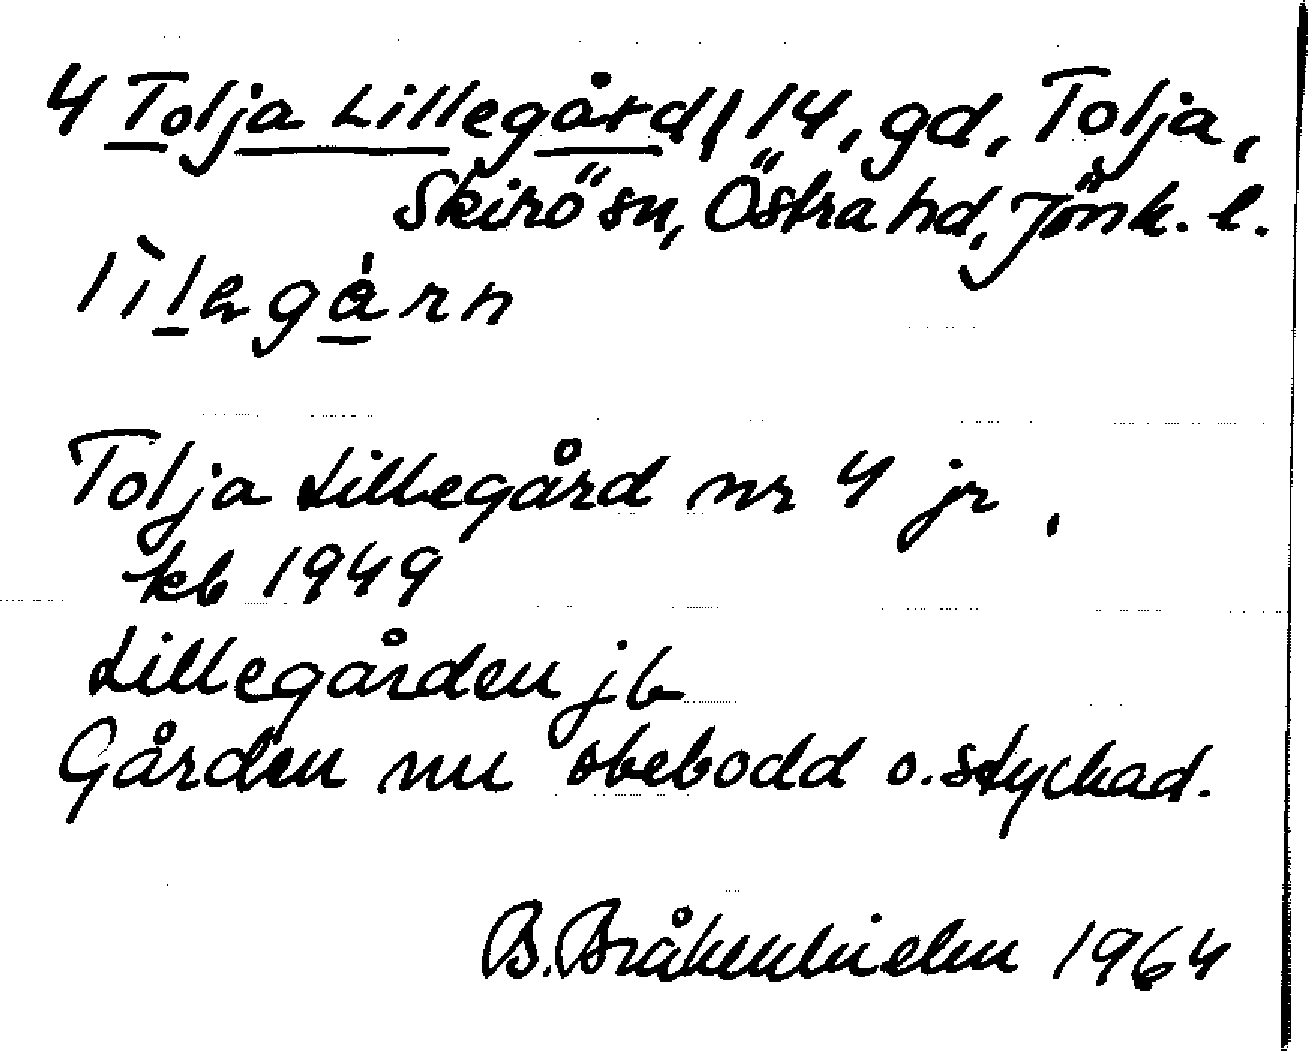 4 Tolja Lillegård, 14, gd, Tolja,
Skirö sn, Östra hd, Jönk. l.
Tolja Lillegård nr 4 jr,
kb 1949
Lillegården jb
Gården nu obebodd o. styckad.
B. Bråkenhielm 1964